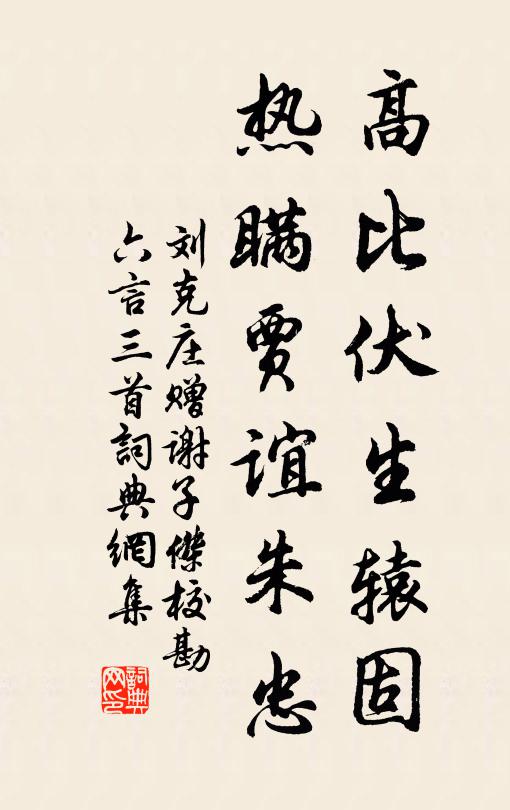 高比伏生辕固
热瞒贾谊朱忠
刘克庄赠谢子傑校勘
六言三首詞典網集
詞典
网印